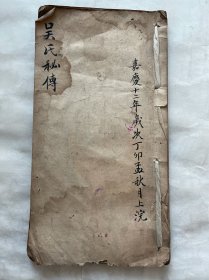 嘉慶十二年歲次丁卯孟秋月上浣
吴氏秘傳